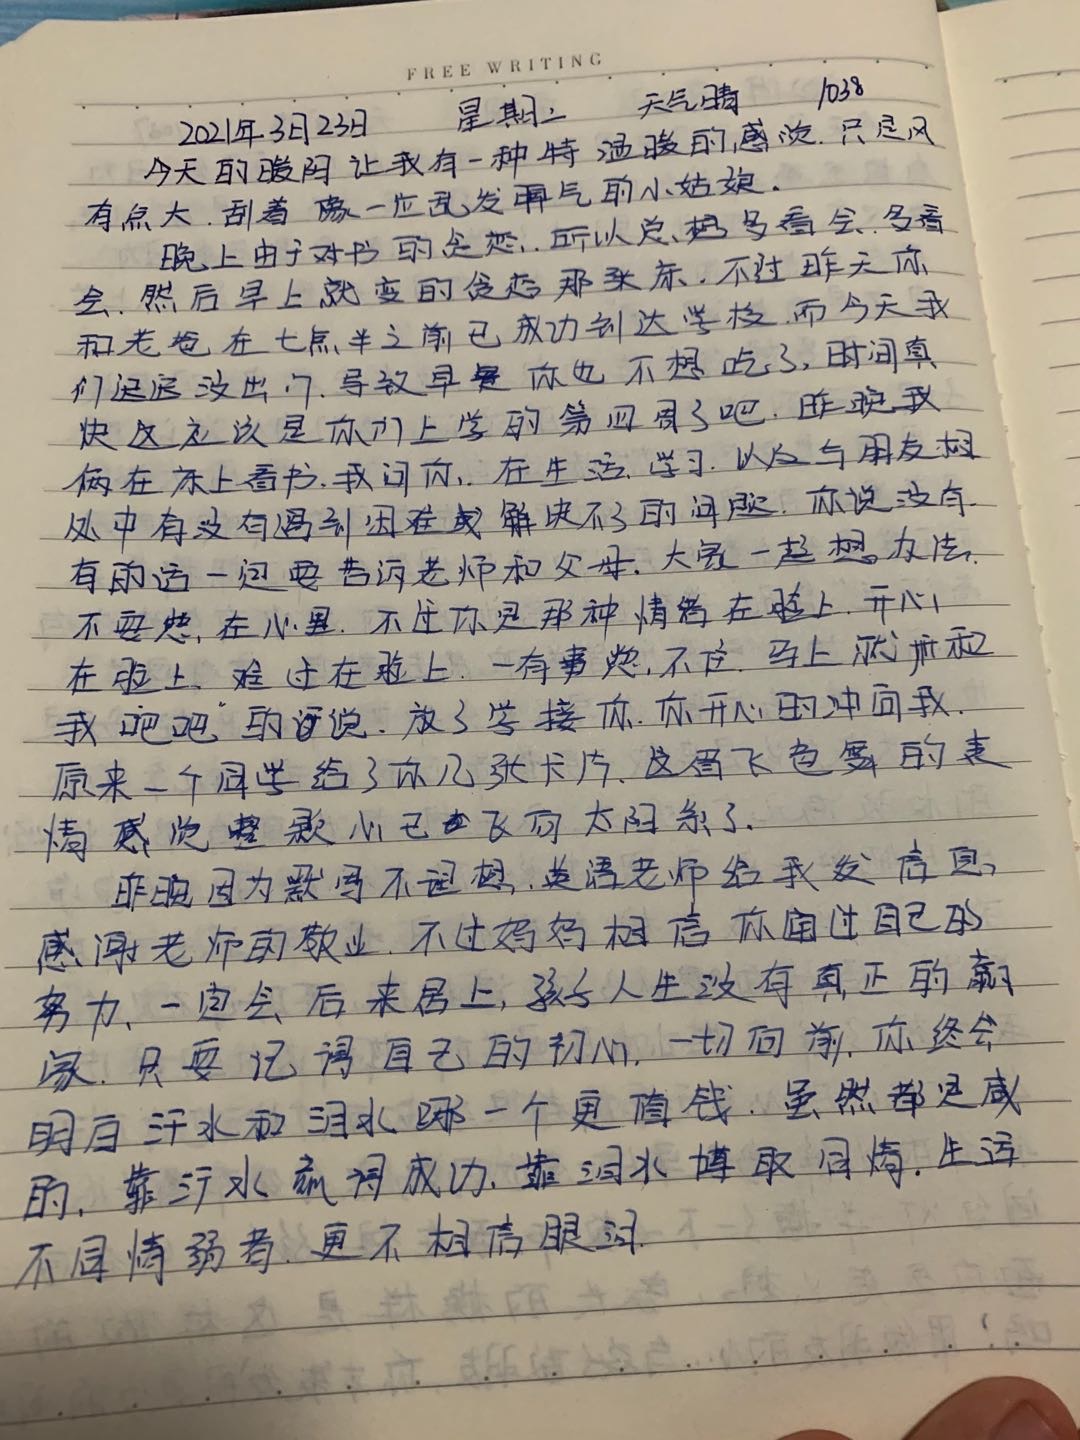 FREE WRITING
2021年3月23日 星期二 天气晴 1038
今天的暖阳让我有一种特温暖的感觉.只是风
有点大.刮着像一位乱发脾气的小姑娘.
晚上由于对书的贪恋,所以总想多看会.多看
会.然后早上就变的贪恋那张床.不过昨天你
和老爸在七点半之前已成功到达学校.而今天我
们迟迟没出门.导致早餐你也不想吃了,时间真
快这应该是你们上学的第四周了吧.昨晚我
俩在床上看书.我问你.在生活.学习.以及与朋友相
处中有没有遇到困难或解决不了的问题.你说没有.
有的话一定要告诉老师和父母.大家一起想办法.
不要憋在心里.不过你是那种情绪在脸上.开心
在脸上.难过在脸上.一有事憋不住.马上就和
我"吧吧"的诉说.放了学接你.你开心的冲向我.
原来一个同学给了你几张卡片.这眉飞色舞的表
情感觉整颗心已飞向太阳系了.
昨晚因为默写不理想.英语老师给我发信息,
感谢老师的敬业.不过妈妈相信你通过自己的
努力、一定会后来居上,孩子人生没有真正的赢
家.只要记得自己的初心.一切向前.你终会
明白汗水和泪水哪一个更值钱.虽然都是咸
的.靠汗水赢得成功.靠泪水博取同情.生活
不同情弱者.更不相信眼泪.